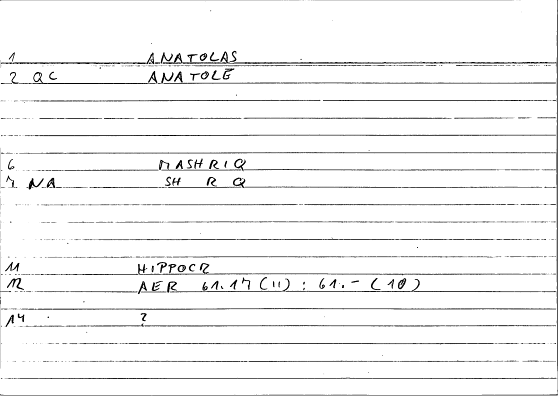 1 ANATOLAS
2 QC ANATOLE
6 MASHRIQ
7 NA SH R Q
11 HIPPOCR
12 AER 61.17 (11) : 61.- (10)
14 ?